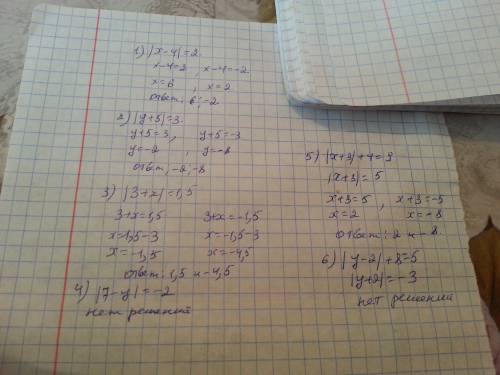 1) |x-4|=2.
x-4=2, x-4=-2
x=6, x=2
Ответ: 6; -2
2) |y+5|=3.
y+5=3, y+5=-3
y=-2, y=-8
Ответ: -2; -8
3) |3+x|=1,5
3+x=1,5 3+x=-1,5
x=1,5-3 x=-1,5-3
x=-1,5 x=-4,5
Ответ: 1,5 и -4,5
4) |7-y|=-2
нет решений
5) |x+3|+4=9
|x+3|=5
x+3=5, x+3=-5
x=2 x=-8
Ответ: 2 и -8
6) |y-2|+8=5
|y+2|=-3
нет решений